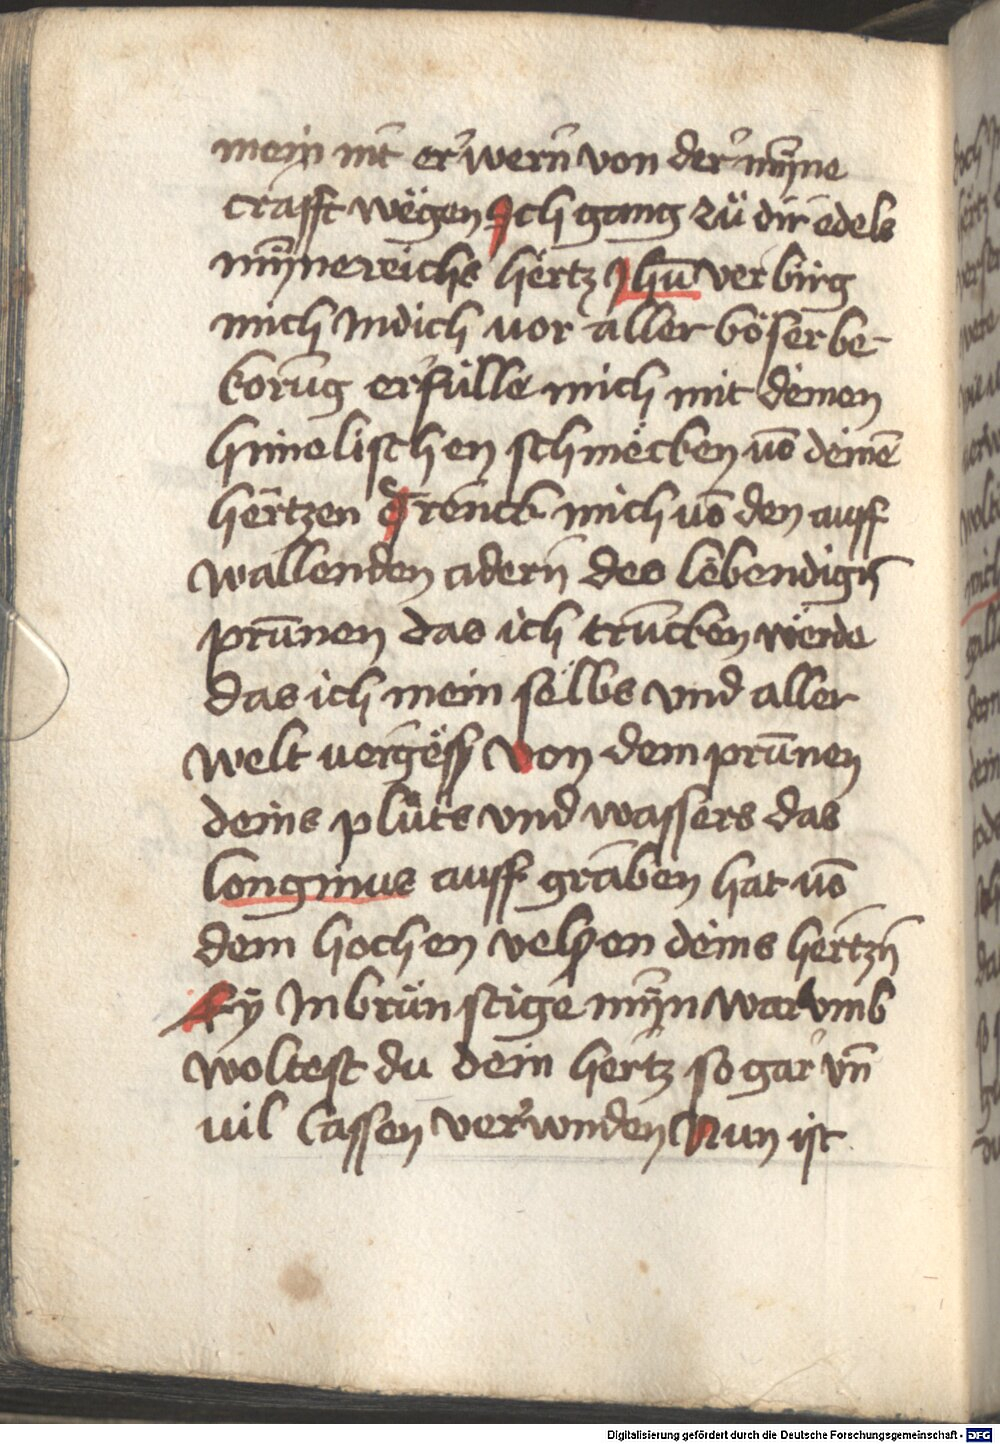 mein nit er wern̄ von der mỹne
crafft wegen Ich gang zů dir edels
mỹnereichs hertz Jhū verbirg
mich Jndich vor aller böser be-
korūg erfülle mich mit deinen
himelischen schmecken vō deinē
hertzen Trenck mich vō den auff
wallenden adern̄ des lebendigē
prūnen das ich truncken werde
das ich mein selbs vnd aller
welt vergess von dem prūnen
deins plůts vnd wassers das
longinus auff graben hat vō
dem hochen velsen deins hertzn̄
Ey Jnbrünstige mỹn warvmb
woltest du dein hertz so gar vn̄
uil lassen verwnden Nun ist
Digitalisierung gefördert durch die Deutsche Forschungsgemeinschaft - DFG